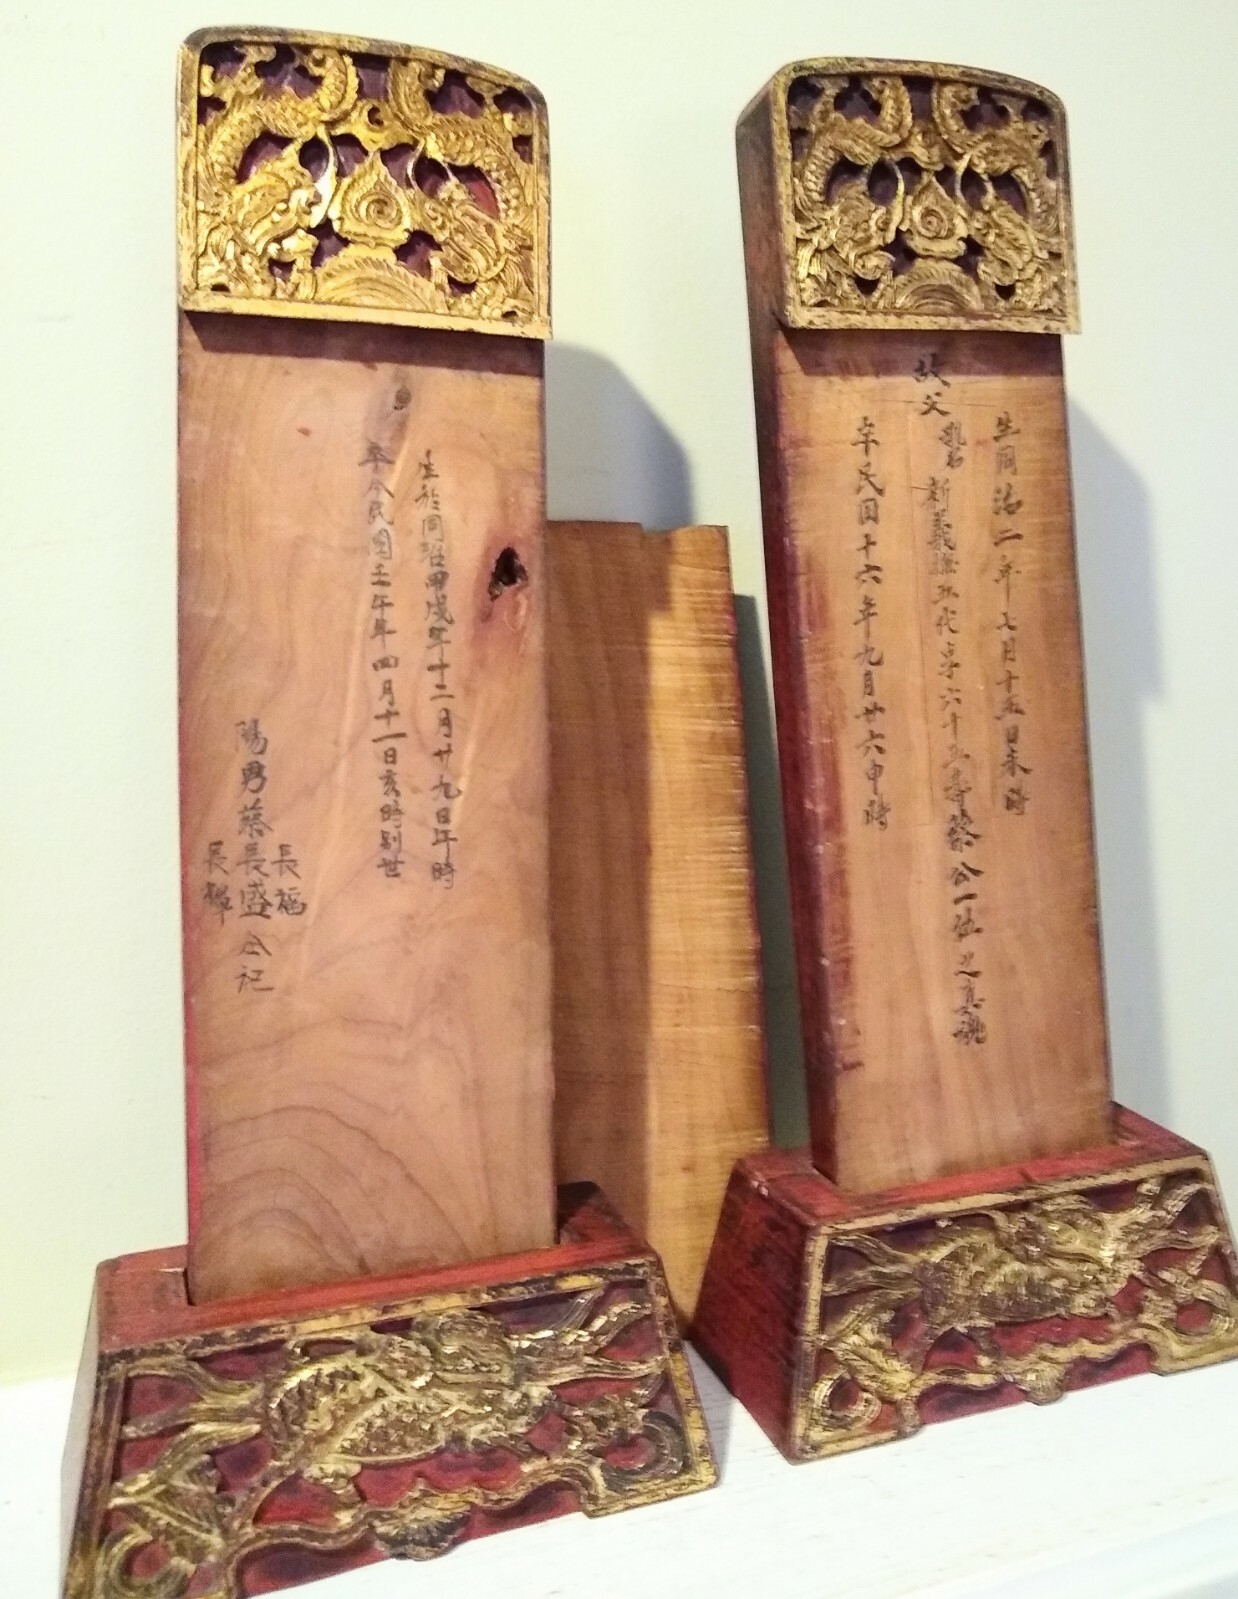 生於同治甲戌年十二月廿九日午時
卒今民國壬午年四月十一日亥時別世
長福
陽男蔡長盛仝記
長輝
生同治二年七月十五日未時
故父 新義 五代享六十五壽蔡公一位之真魂
卒民国十六年九月廿六申時